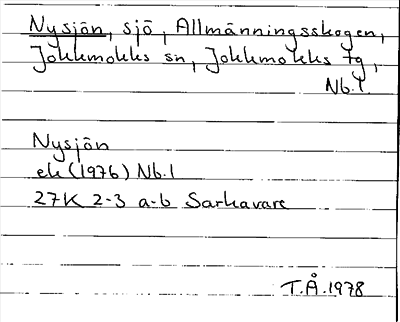 Nysjön, sjö, Allmänningsskogen,
Jokkmokks sn, Jokkmokks tg,
Nb.l.
Nysjön
ek (1976) Nb.l
27K 2-3 a-b Sarkavare
T.Å.1978